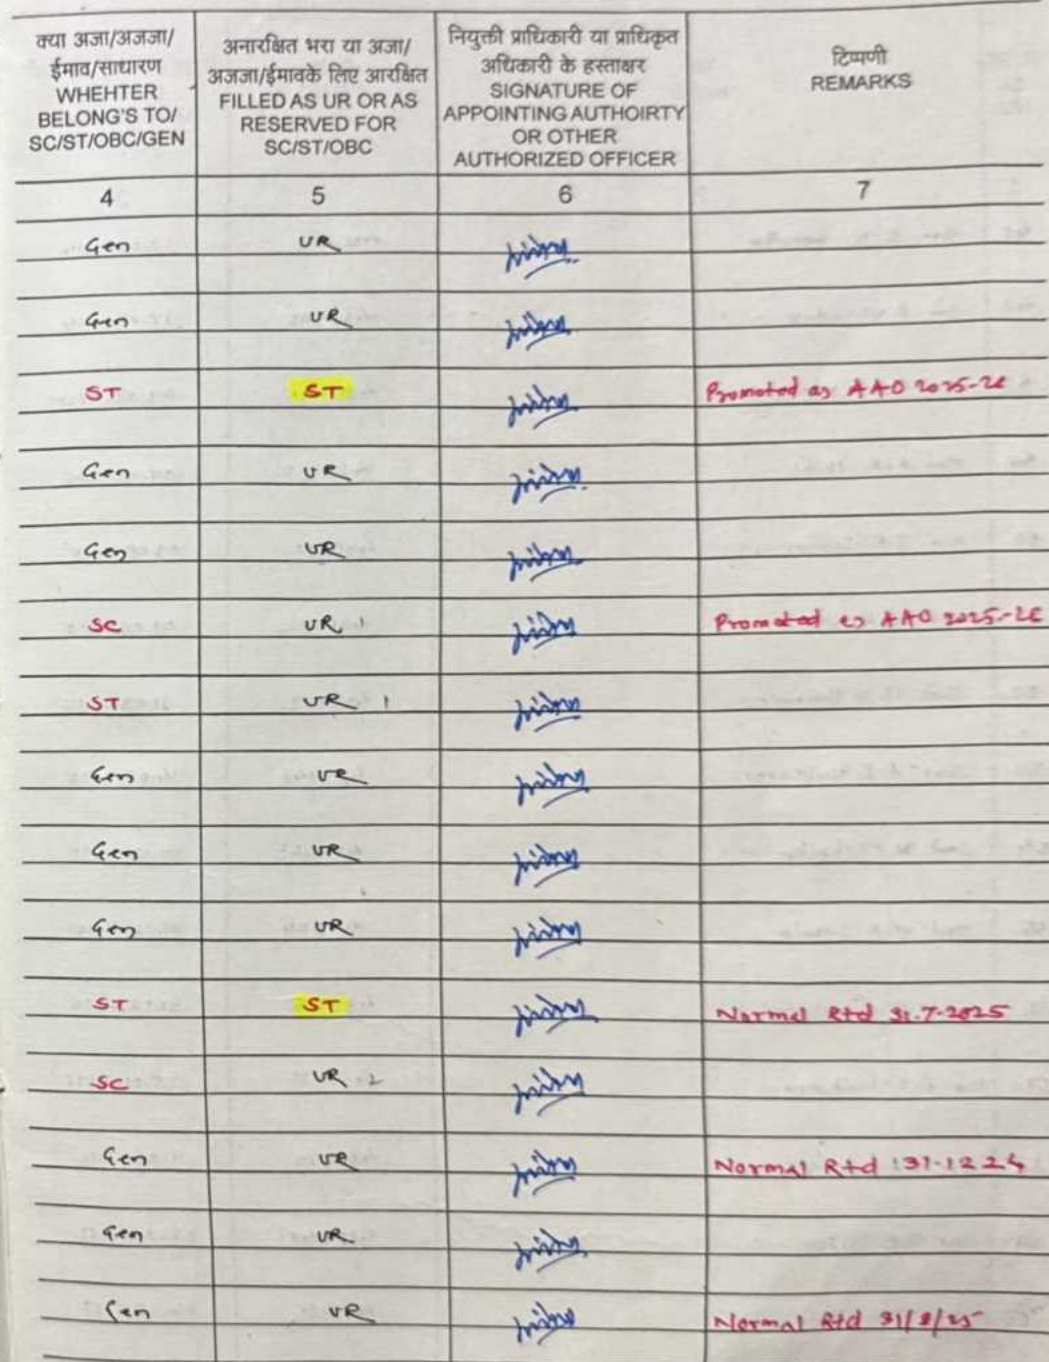 क्या अजा/अजजा/
ईमाव/साधारण
WHEHTER
BELONG'S TO/
SC/ST/OBC/GEN
अनारक्षित भरा या अजा/
अजजा/ईमावके लिए आरक्षित
FILLED AS UR OR AS
RESERVED FOR
SC/ST/OBC
नियुक्ती प्राधिकारी या प्राधिकृत
अधिकारी के हस्ताक्षर
SIGNATURE OF
APPOINTING AUTHOIRTY
OR OTHER
AUTHORIZED OFFICER
टिप्पणी
REMARKS
4 5 6 7
Gen UR
Gen UR
ST ST Promoted as AAO 2025-26
Gen UR
Gen UR
SC UR 1 Promoted as AAO 2025-26
ST UR 1
Gen UR
Gen UR
Gen UR
ST ST Normal Rtd 31.7.2025
SC UR 2
Gen UR Normal Rtd 31-12 24
Gen UR
Gen UR Normal Rtd